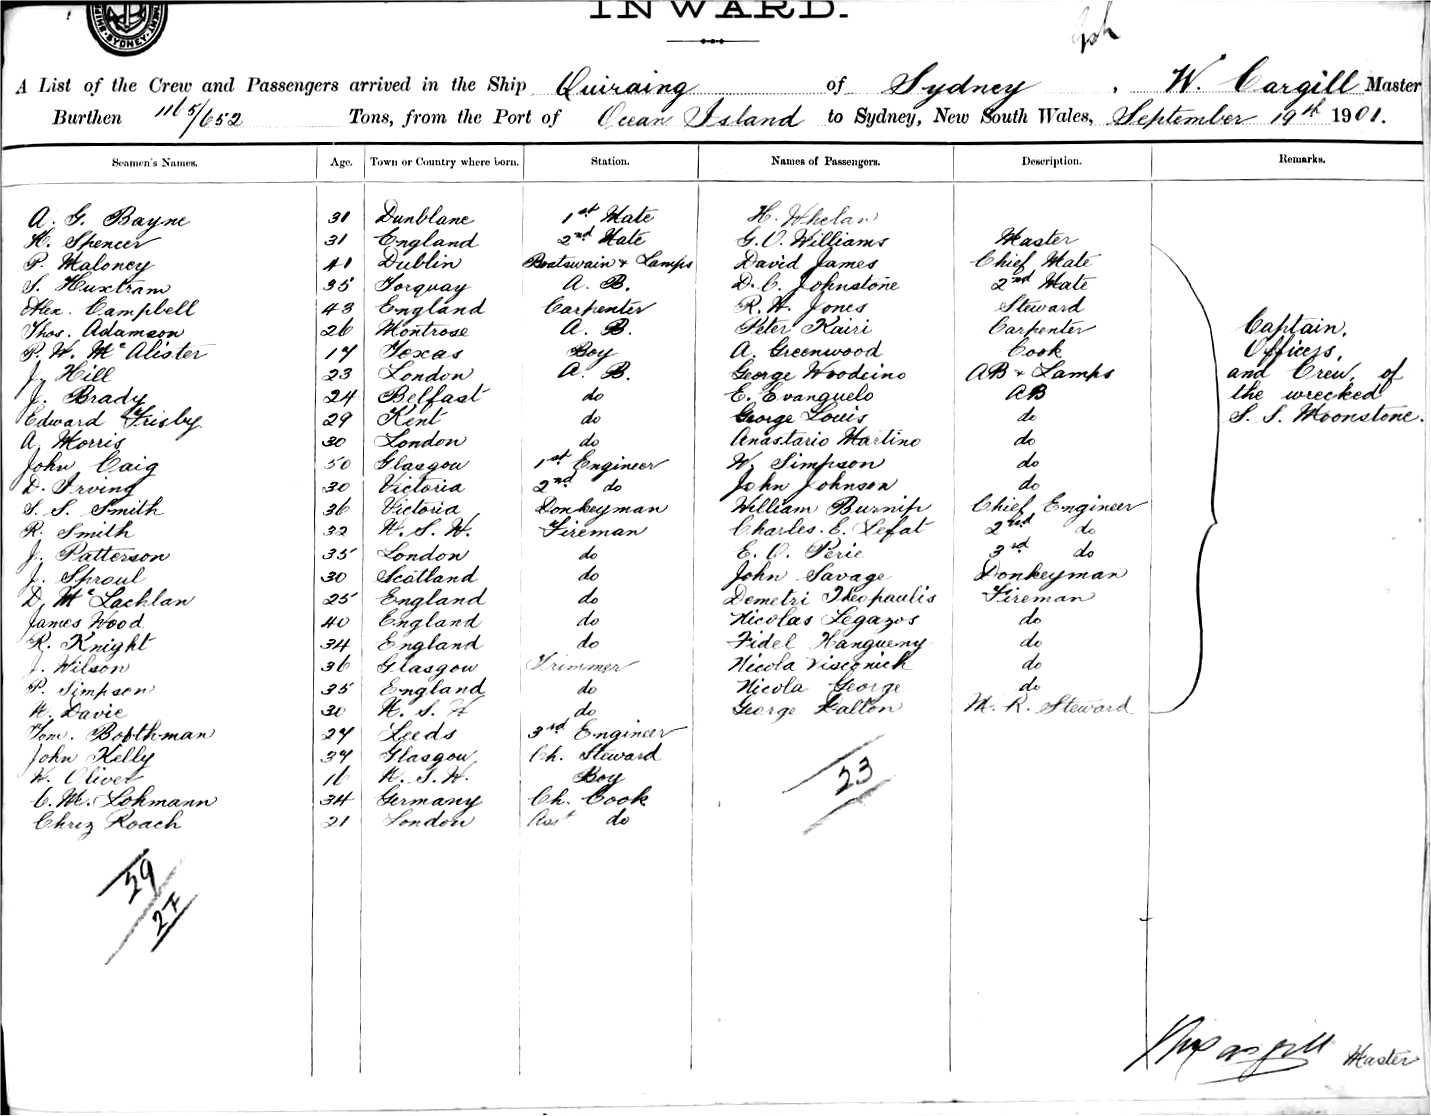 SYDNEY
INWARD.
A List of the Crew and Passengers arrived in the Ship Quiraing of Sydney, W. Cargill Master
Burthen 1165/652 Tons, from the Port of Ocean Island to Sydney, New South Wales, September 19th 1901.
Seamen's Names. Age. Town or Country where born. Station. Names of Passengers. Description. Remarks.
A. G. Bayne 31 Dunblane 1st Mate H. Whelan
H. Spencer 31 England 2nd Mate G. O. Williams Master
P. Maloney 41 Dublin Boatswain & Lamps David James Chief Mate
S. Huxtram 35 Torquay A. B. D. C. Johnstone 2nd Mate
Alex. Campbell 43 England Carpenter R. H. Jones Steward
Thos. Adamson 26 Montrose A. B. Peter Kairi Carpenter Captain,
P. W. McAlister 17 Texas Boy A. Greenwood Cook Officers,
J. Hill 23 London A. B. George Woodcino AB & Lamps and Crew, of
J. Brady 24 Belfast do E. Evanguelo AB the wrecked
Edward Frisby 29 Kent do George Louis do S. S. Moonstone.
A. Morris 30 London do Anastario Martino do
John Caig 50 Glasgow 1st Engineer W. Simpson do
D. Irving 30 Victoria 2nd do John Johnson do
S. S. Smith 36 Victoria Donkeyman William Burnip Chief Engineer
R. Smith 32 N. S. W. Fireman Charles. E. Lefat 2nd do
J. Patterson 35 London do E. O. Perie 3rd do
J. Sproul 30 Scotland do John Savage Donkeyman
D. McLachlan 25 England do Demetri Theopaulis Fireman
James Wood 40 England do Nicolas Legazos do
R. Knight 34 England do Fidel Hangueny do
J. Wilson 36 Glasgow Trimmer Nicola Viscovich do
P. Simpson 35 England do Nicola George do
H. Davie 30 N. S. W do George Dalton M. R. Steward
Tom. Boothman 27 Leeds 3rd Engineer
John Kelly 37 Glasgow Ch. Steward
W. Oliver 16 N. S. W. Boy
C. M. Lohmann 34 Germany Ch. Cook
Chriz Roach 21 London Asst do
23
29
27
Cargill Master